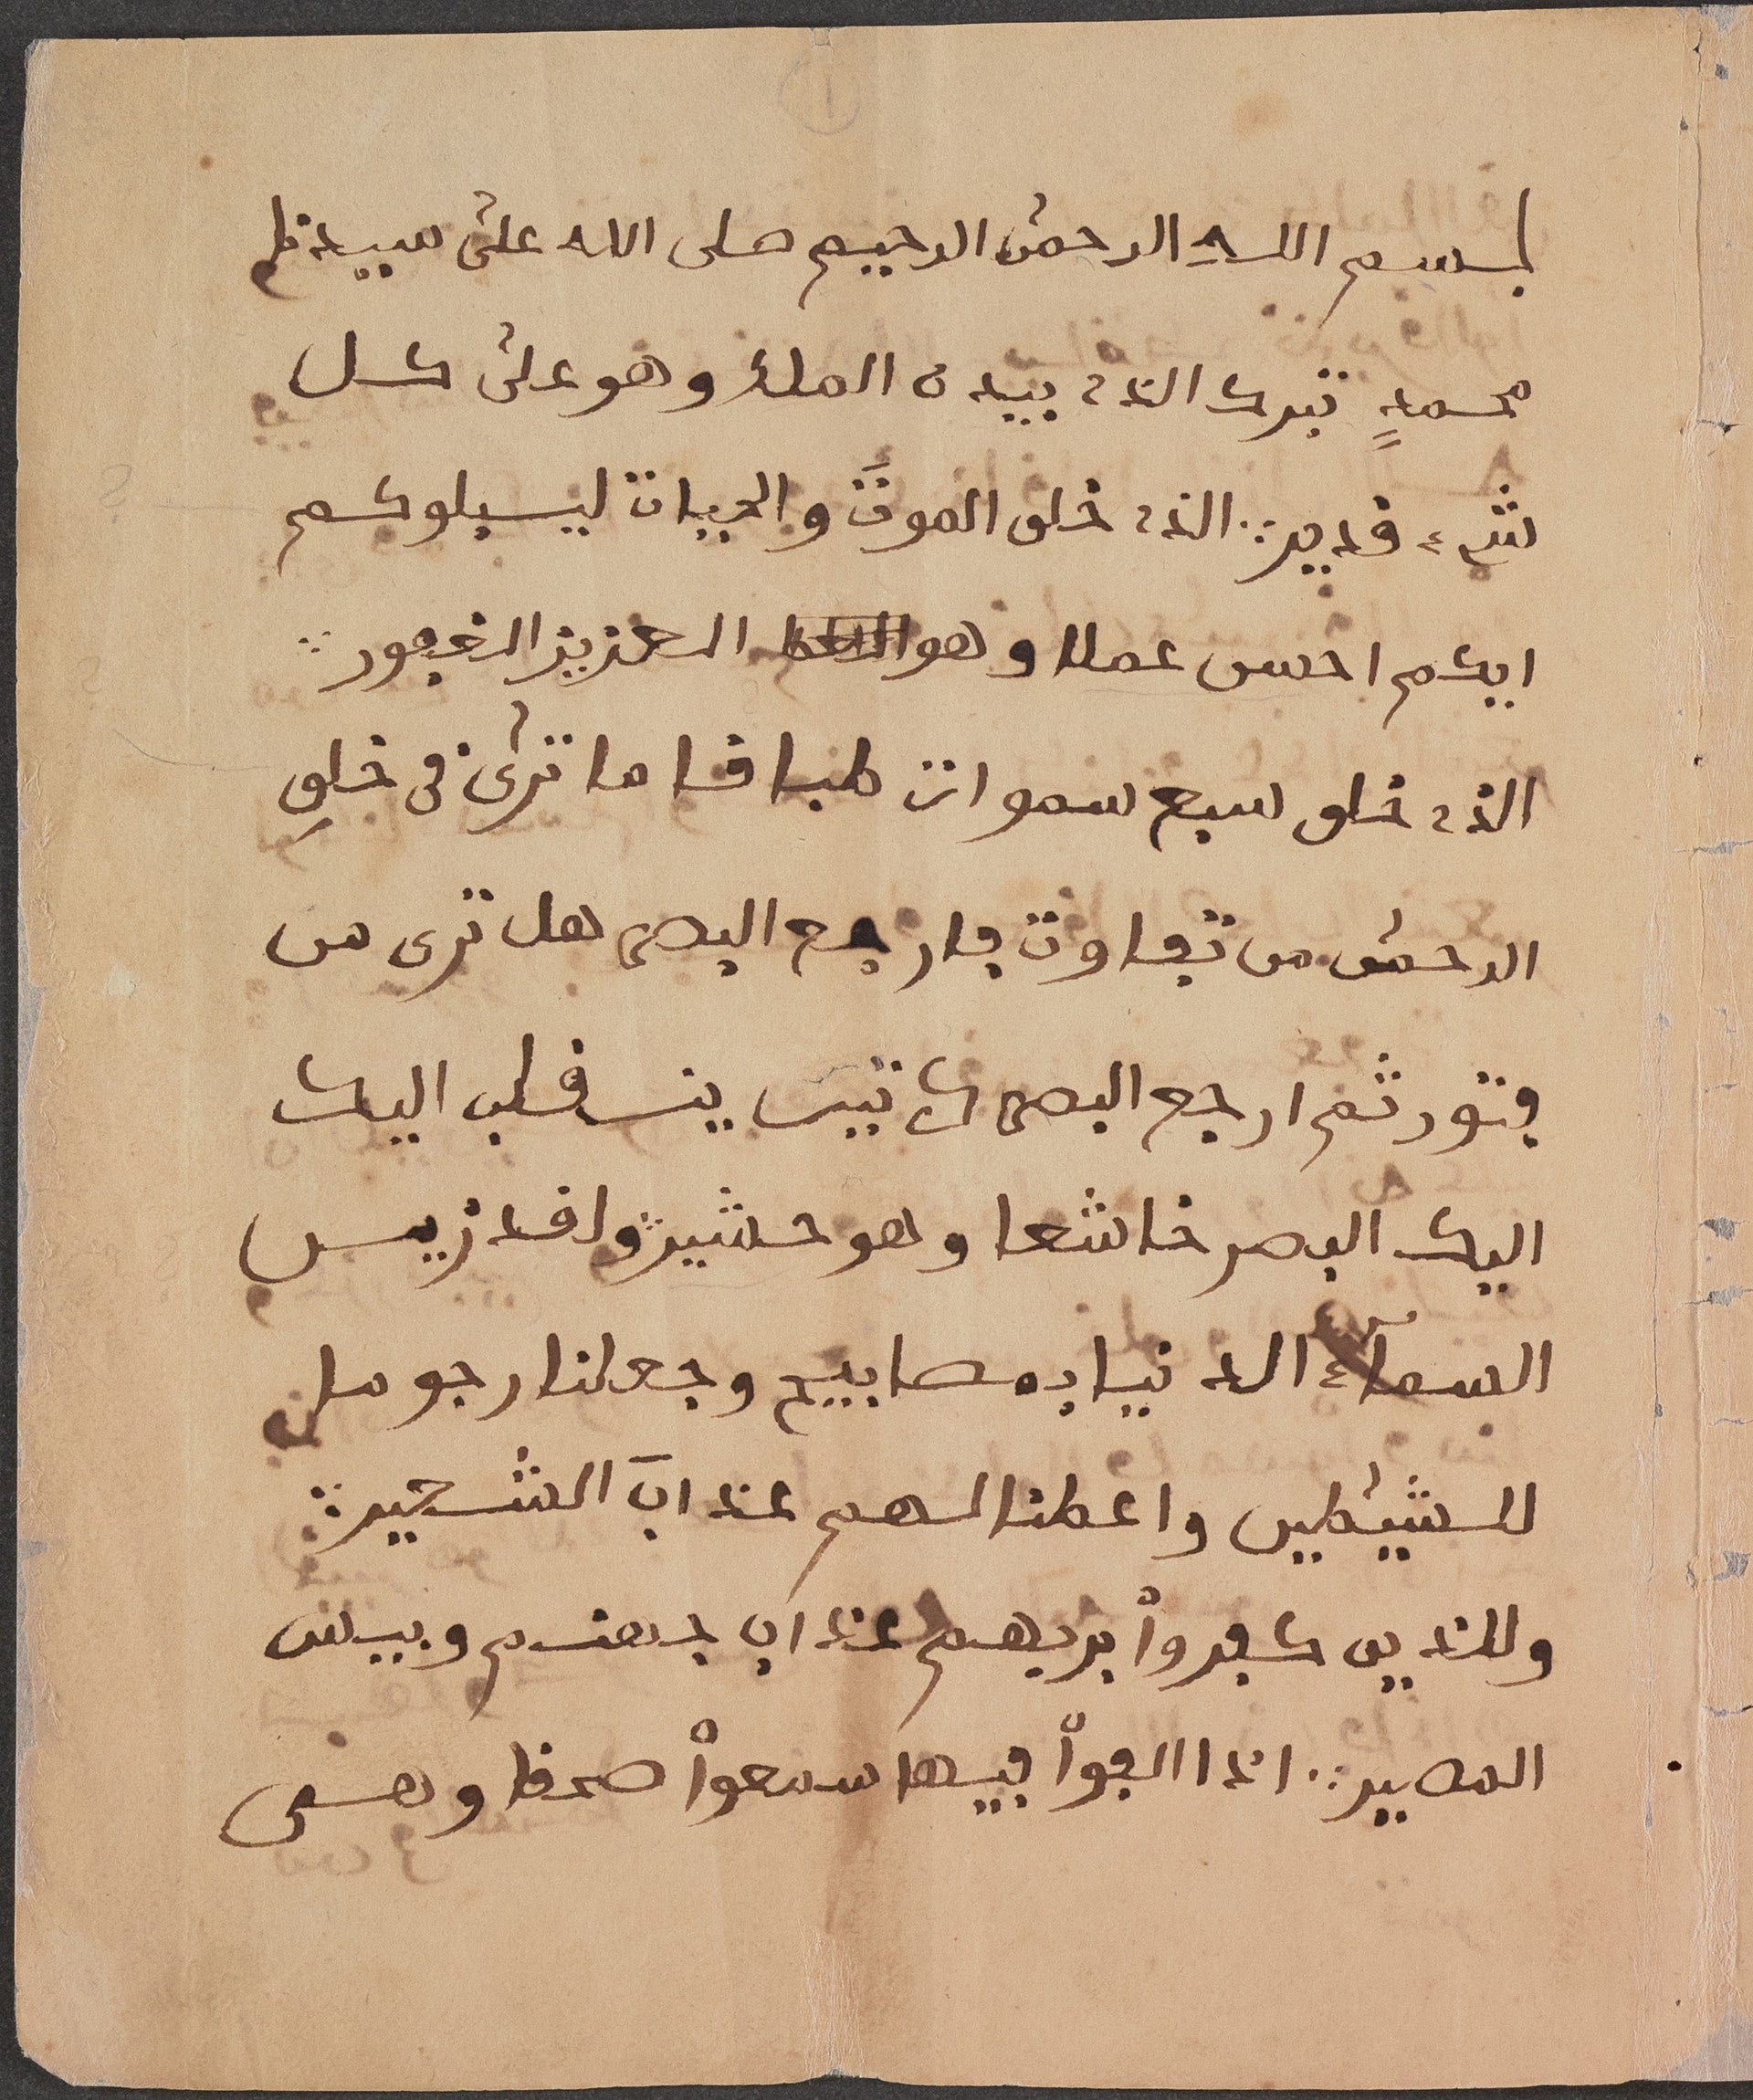 بسم الله الرحمٰن الرحيم صلى الله علىٰ سيدنا
محمدٍ تبرك الذي بيده الملك وهو علىٰ كل
شيء قدير ∴ الذي خلق الموتَ والحيات ليسبلوكم
ايكم احسن عملا وهو العزيز الغفور ∴
الذي خلق سبع سموات طباقا ما ترىٰ في خلقِ
الرحمٰن من تفاوت فارجع البصر هل ترى من
فتور ثم ارجع البصر كرتين ينسقلب اليك
اليك البصر خاشعا وهو حشير ∴ ولقد زين
السمآء الدنيا بمصابيح وجعلنا رجوما
للشيٰطين واعطنا لهم عذابَ الشعير ∴
وللذين كفرواْ بربهم عذاب جهنم وبيس
المصير ∴ اذا القواْ فيها سمعواْ صحقا وهى